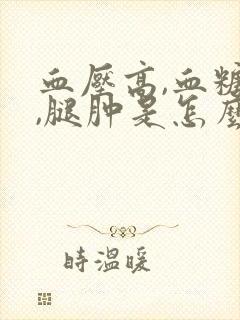 血壓高,血糖
,腿肿是怎麼
時溫暖